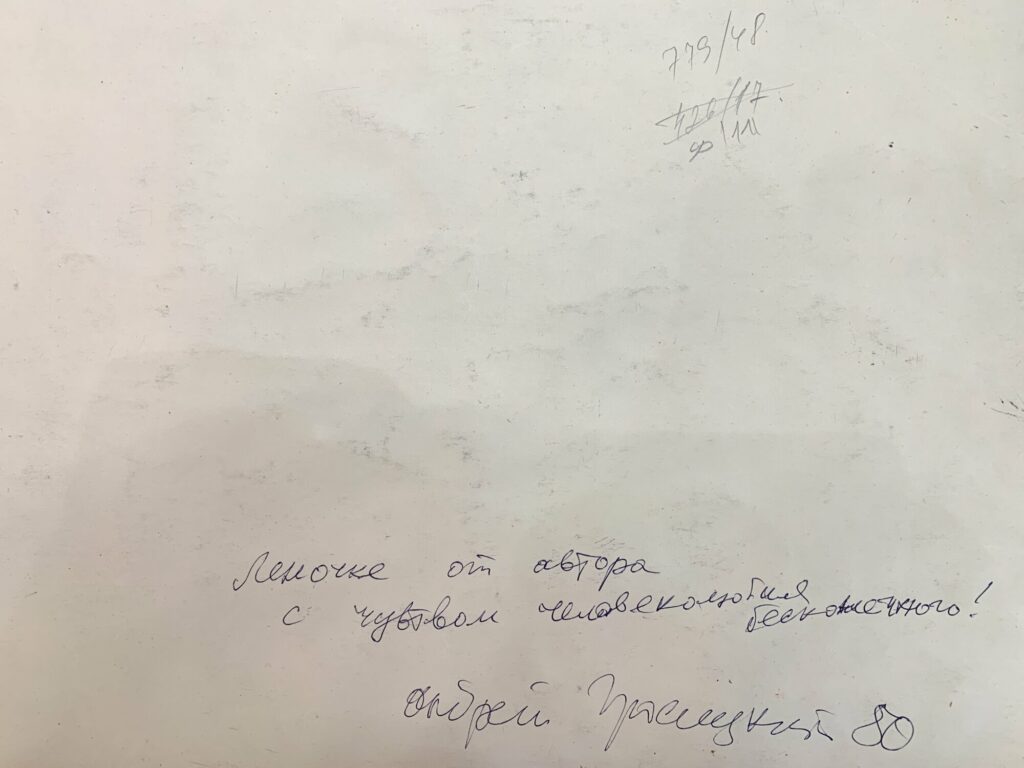 779/48.
Леночке от автора
с чувством человеколюбия бесконечного!
Андрей Гросицкий 80